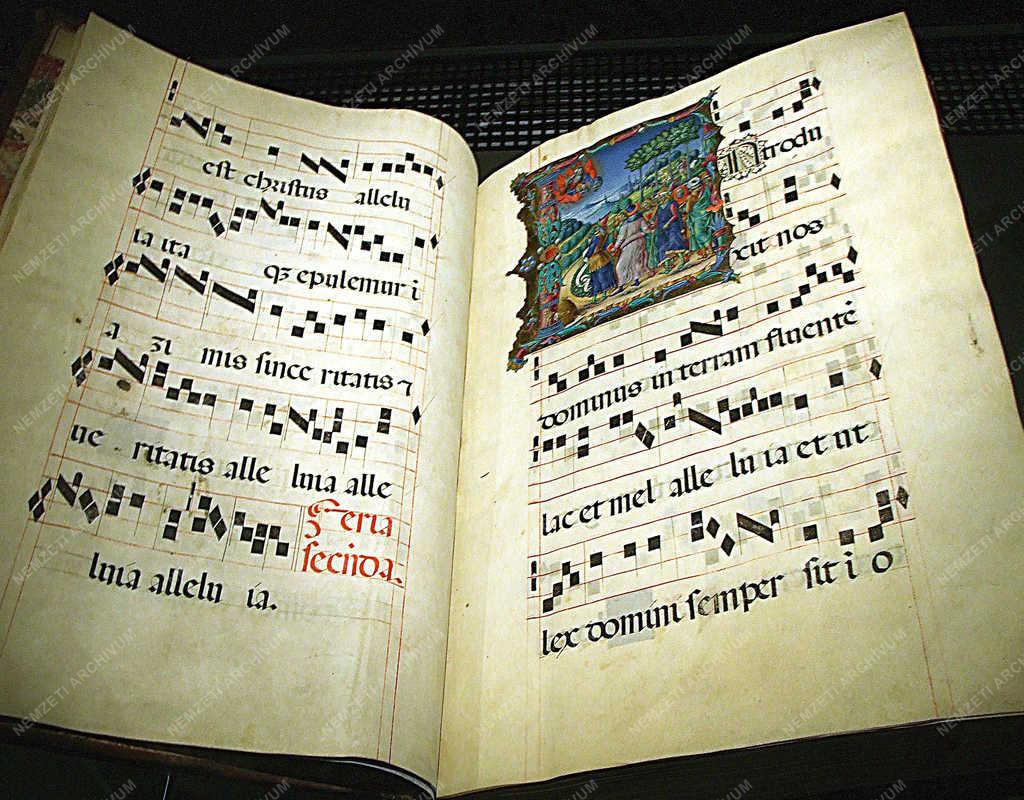 est christus allelu
ia ita qz epulemur i
a zi mis since ritatis 7
ue ritatis alle luia alle
feria
luia allelu ia.
secūda.
INtrodu
xit nos
dominus in terram fluentē
lac et mel alle lu ia et ut
lex domini semper sit i o
NEMZETI ARCHÍVUM